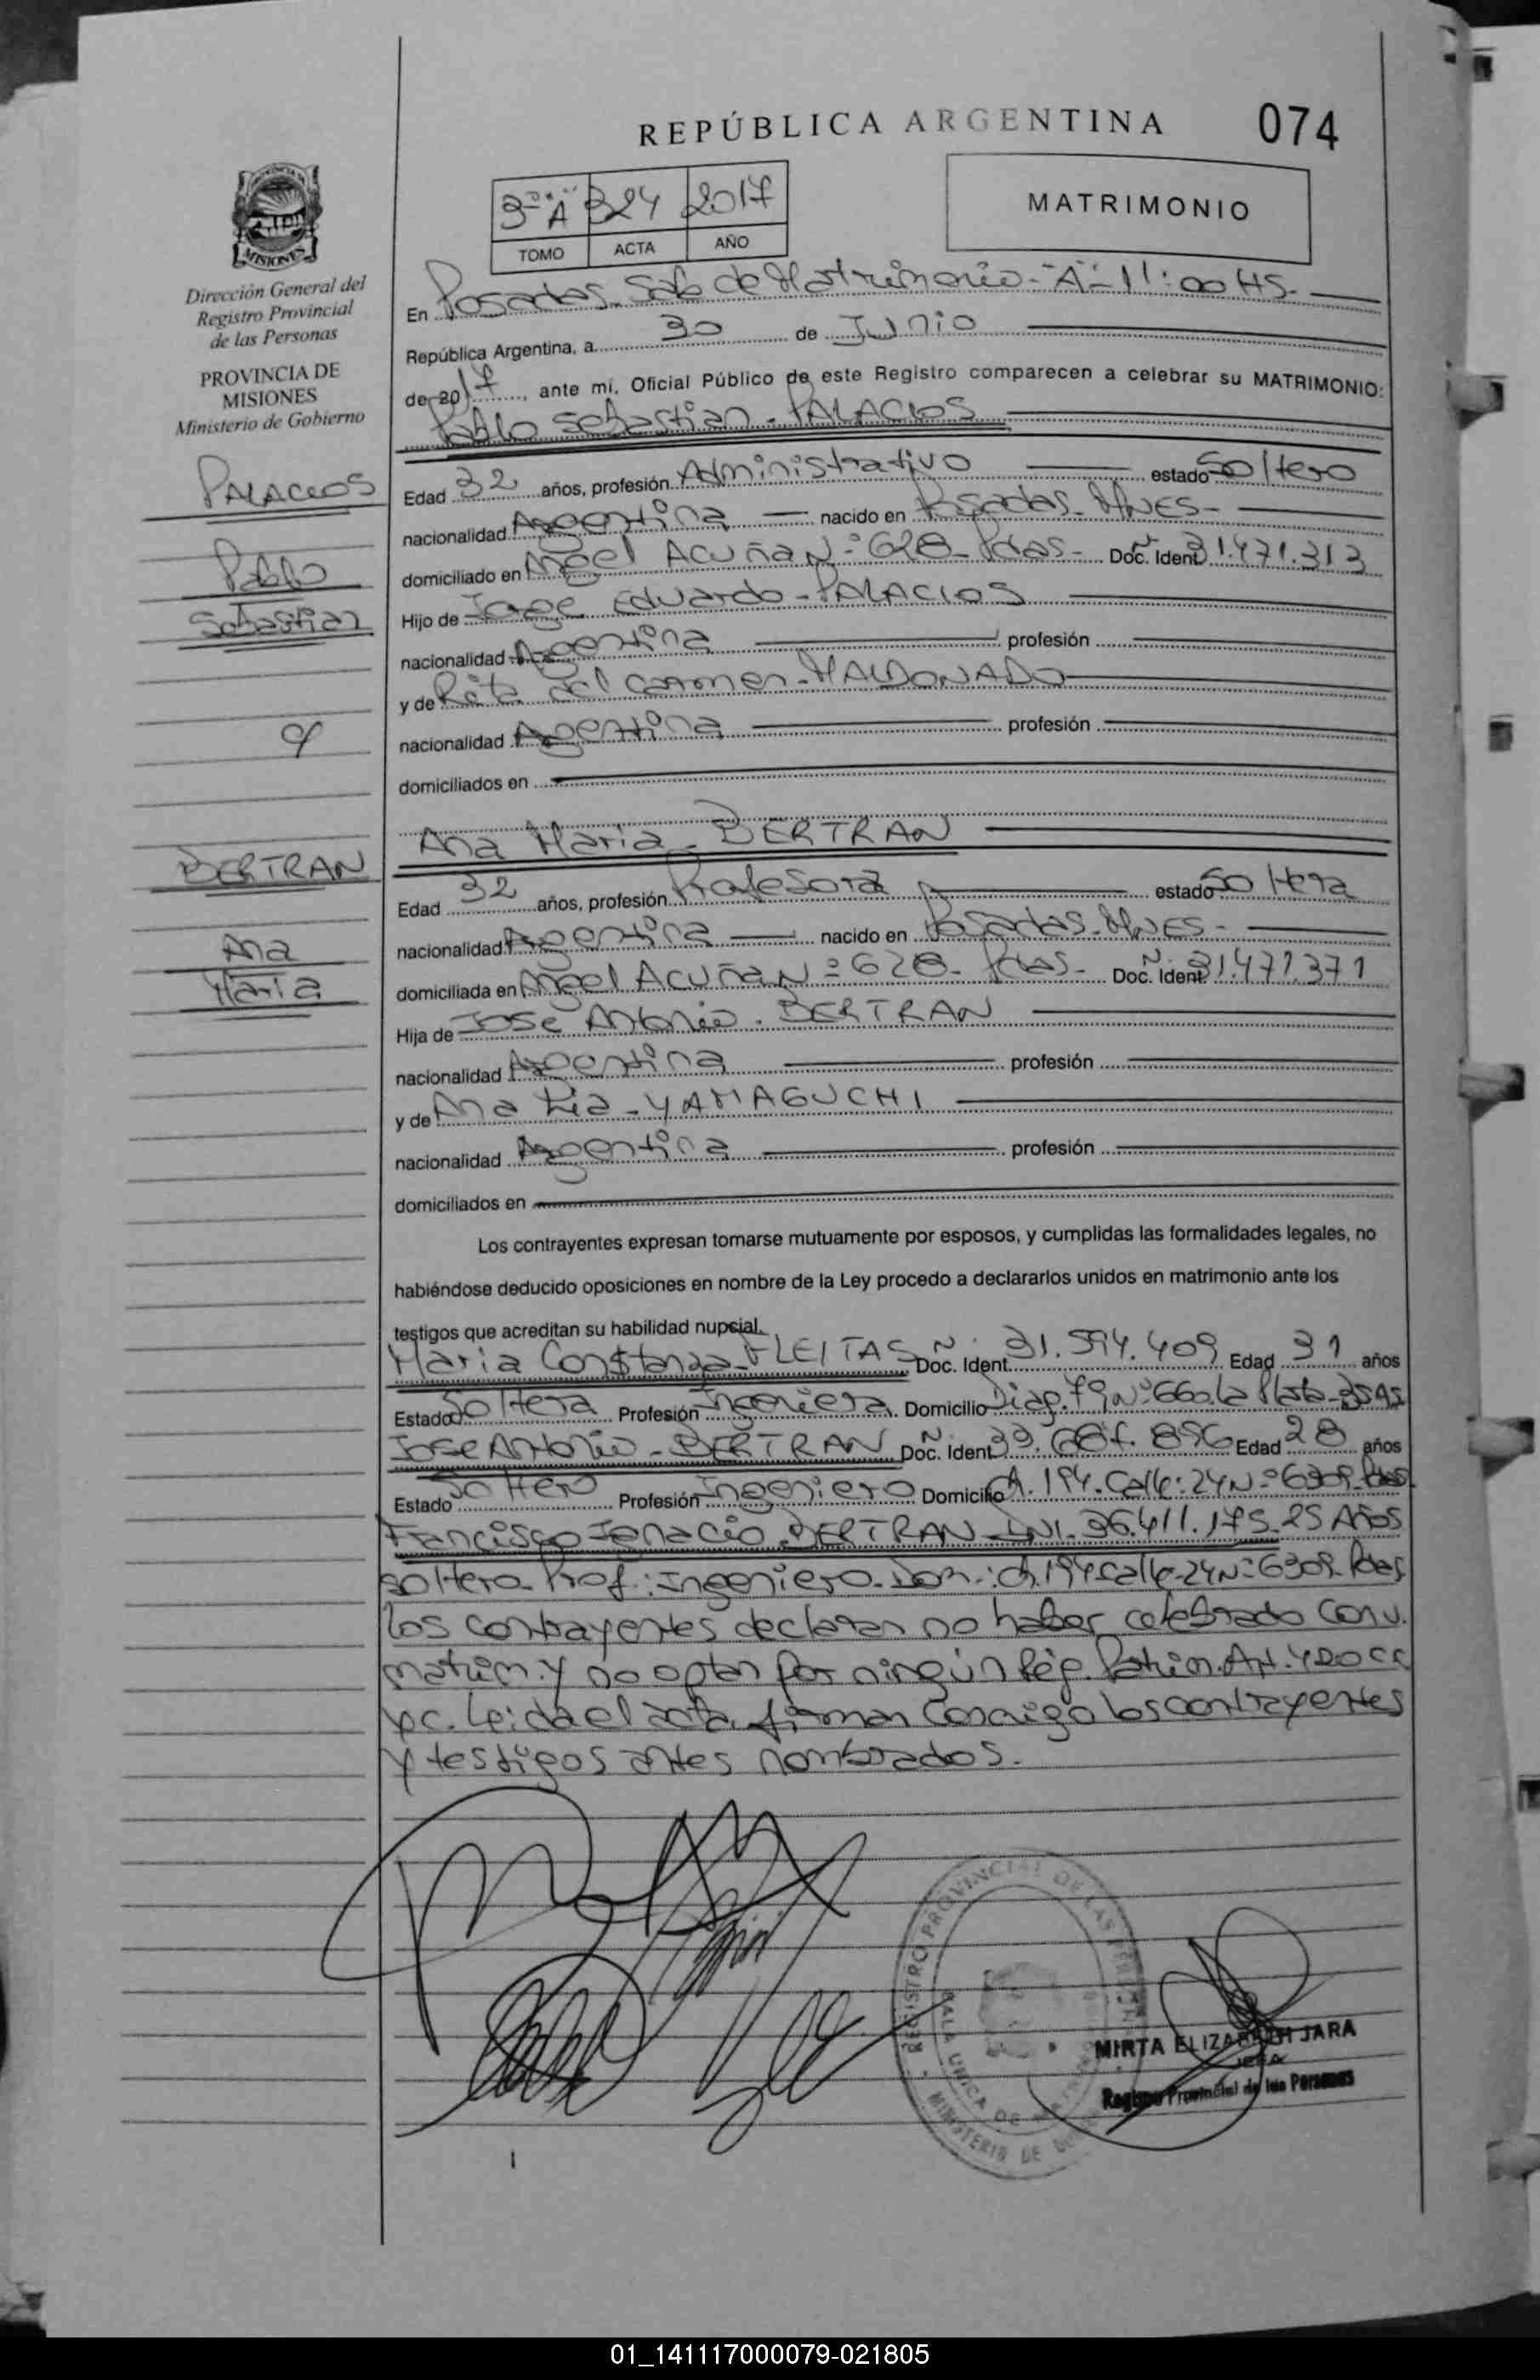 REPÚBLICA ARGENTINA
074
3º "A" 324 2017
TOMO ACTA AÑO
MATRIMONIO
MISIONES
Dirección General del
Registro Provincial
de las Personas
PROVINCIA DE
MISIONES
Ministerio de Gobierno
En Posadas Sala de Matrimonio - A - 11:00 HS.
República Argentina, a 30 de Junio
de 2017, ante mí, Oficial Público de este Registro comparecen a celebrar su MATRIMONIO:
Pablo Sebastian - PALACIOS
PALACIOS
Pablo
Sebastian
y
Edad 32 años, profesión Administrativo estado Soltero
nacionalidad Argentina nacido en Posadas - MNES -
domiciliado en Angel Acuña Nº 628 - Pdas - Doc. Ident 31.471.313
Hijo de Jorge Eduardo - PALACIOS
nacionalidad Argentina profesión
y de Rita del Carmen - MALDONADO
nacionalidad Argentina profesión
domiciliados en
Ana Maria - BERTRAN
BERTRAN
Ana
Maria
Edad 32 años, profesión Profesora estado Soltera
nacionalidad Argentina nacido en Posadas - MNES -
domiciliada en Angel Acuña Nº 628 - Pdas - Doc. Ident 31.471.371
Hija de Jose Antonio - BERTRAN
nacionalidad Argentina profesión
y de Ana - YAMAGUCHI
nacionalidad Argentina profesión
domiciliados en
Los contrayentes expresan tomarse mutuamente por esposos, y cumplidas las formalidades legales, no
habiéndose deducido oposiciones en nombre de la Ley procedo a declararlos unidos en matrimonio ante los
testigos que acreditan su habilidad nupcial.
Maria Constanza - FLEITAS Doc. Ident. 31.594.409 Edad 31 años
Estado Soltera Profesión Ingeniera Domicilio Diag. 79 Nº 660. La Plata - BSAS
Jose Antonio - BERTRAN Doc. Ident 856 Edad 28 años
Estado Soltero Profesión Ingeniero Domicilio Ch. 194 - Calle: 24 Nº 6309 - Pdas
Francisco Ignacio - BERTRAN - DNI - 36.411.175 - 25 Años
soltero - Prof: Ingeniero - Dom: Ch. 194 - calle - 24 Nº 6309 - Pdas
Los contrayentes declaran no haber celebrado Conv.
matrim. y no optan por ningún Rég. Patrim. Art. 420 CC
yc. Leida el acta, firman conmigo los contrayentes
y testigos antes nombrados.
REGISTRO PROVINCIAL DE LAS PERSONAS
SALA UNICA DE
MINISTERIO DE
MIRTA ELIZABETH JARA
JEFA
Registro Provincial de las Personas
01_141117000079-021805